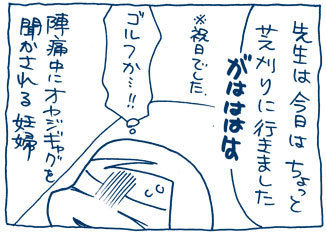 先生は今日はちょっと
芝刈りに行きました
がはははは
※祝日でした。
ゴルフか…!!
陣痛中にオヤジギャグを
聞かされる妊婦